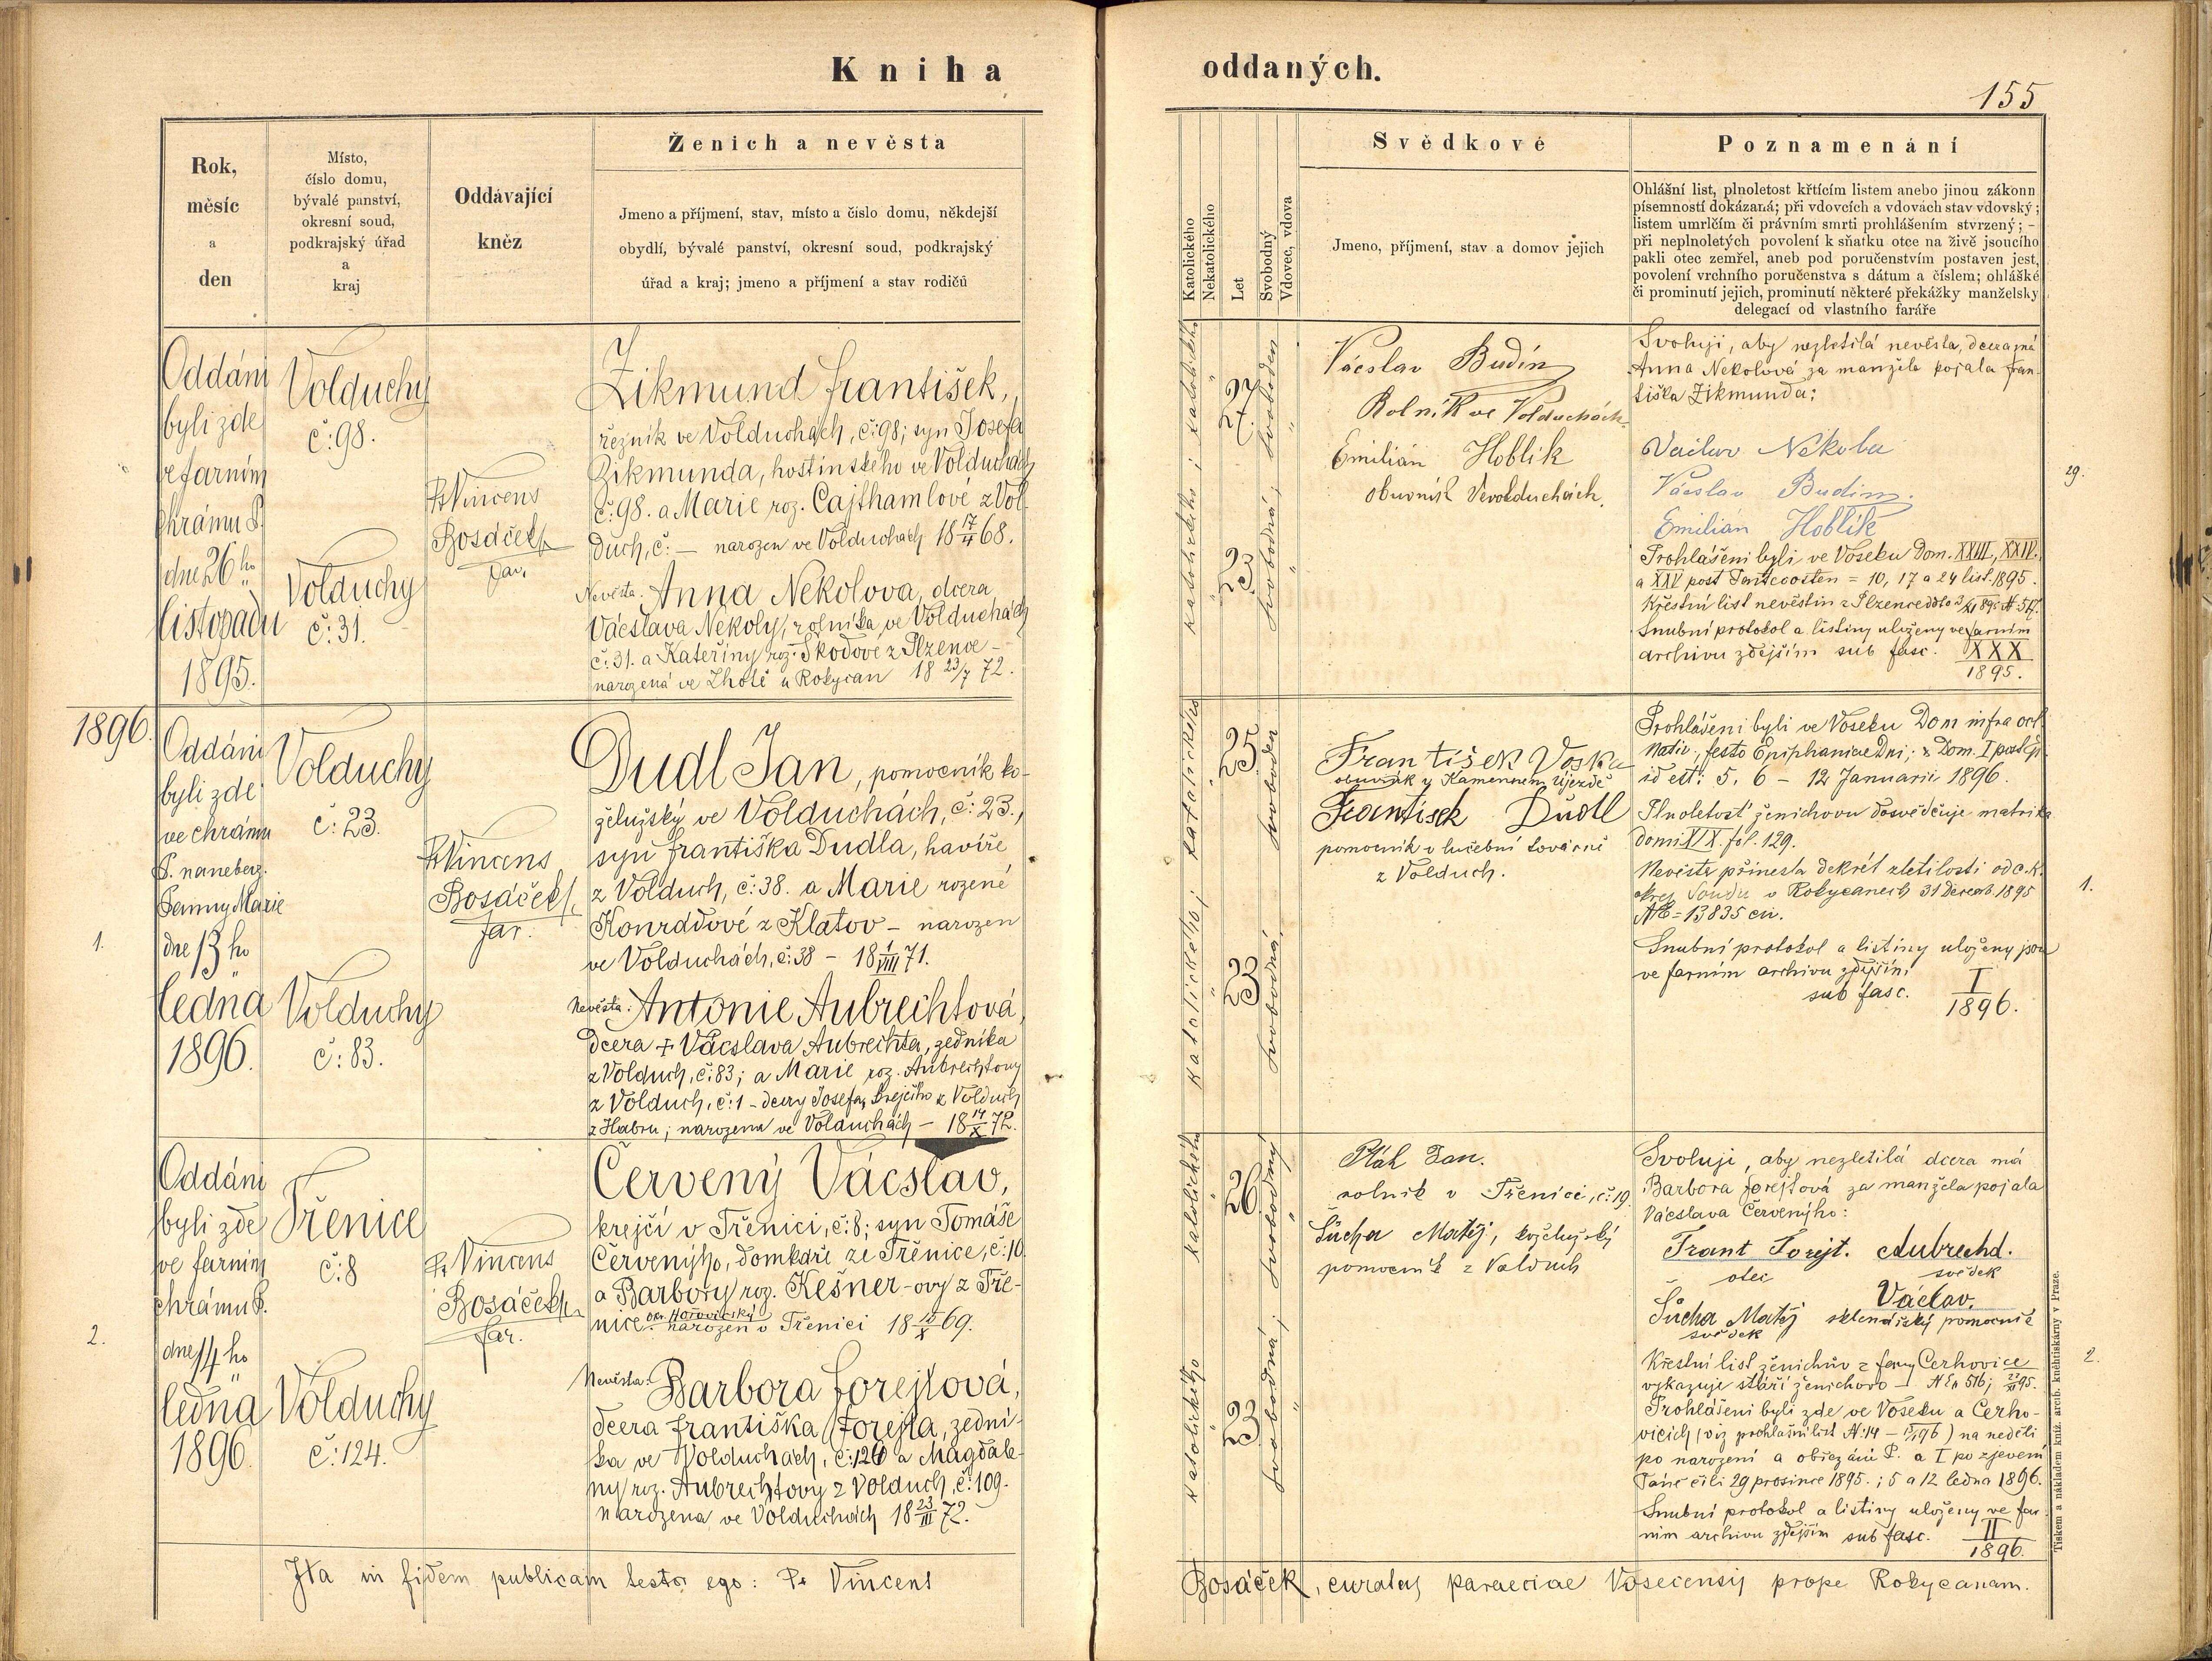 Kniha
oddaných.
155
Rok,
měsíc
a
den
Místo,
číslo domu,
bývalé panství,
okresní soud,
podkrajský úřad
a
kraj
Oddávající
kněz
Ženich a nevěsta
Jmeno a příjmení, stav, místo a číslo domu, někdejší
obydlí, bývalé panství, okresní soud, podkrajský
úřad a kraj; jmeno a příjmení a stav rodičů
Katolického
Nekatolického
Let
Svobodný
Vdovec, vdova
Svědkové
Jmeno, příjmení, stav a domov jejich
Poznamenání
Ohlášní list, plnoletost křtícím listem anebo jinou zákonn
písemností dokázaná; při vdovcích a vdovách stav vdovský;
listem umrlčím či právním smrti prohlášením stvrzený; -
při neplnoletých povolení k sňatku otce na živě jsoucího
pakli otec zemřel, aneb pod poručenstvím postaven jest,
povolení vrchního poručenstva s dátum a číslem; ohlášké
či prominutí jejich, prominutí některé překážky manželsky
delegací od vlastního faráře
Oddáni
byli zde
ve farním
chrámu P.
dne 26ho
listopadu
1895.
Volduchy
č: 98.
Volduchy
č: 31.
P. Vincens
Bosáček
far.
Zikmund František,
řezník ve Volduchách, č: 98; syn Josefa
Zikmunda, hostinského ve Volduchách
č: 98. a Marie roz. Cajthamlové z Vol-
duch, č: — narozen ve Volduchách 18 17/4 68.
Nevěsta: Anna Nekolova, dcera
Vácslava Nekoly, rolníka ve Volduchách
č: 31. a Kateřiny roz. Škodové z Plzence -
narozená ve Lhotě u Rokycan 18 23/7 72.
katolického; katolického
27.
23
svobodná; svoboden
Vácslav Budín
Rolník ve Volduchách
Emilián Hoblík
obuvník Vevolduchách.
Svoluji, aby nezletilá nevěsta, dcera má
Anna Nekolová za manžela pojala Fran-
tiška Zikmunda:
Václav Nekola
Vácslav Budín.
Emilián Hoblík
Prohlášeni byli ve Voseku Dom. XXIII, XXIV.
a XXV post Pentecosten = 10, 17 a 24 list. 1895.
Křestní list nevěstin z Plzence ddto
Snubní protokol a listiny uloženy ve farním
archivu zdejším sub fasc. XXX
1895.
29.
1896.
1.
Oddáni
byli zde
ve chrámu
P. naneberz.
Panny Marie
dne 13ho
ledna
1896.
Volduchy
č: 23.
Volduchy
č: 83.
P. Vincens
Bosáček
far.
Dudl Jan, pomocník ko-
želužský ve Volduchách, č: 23.,
syn Františka Dudla, havíře
z Volduch, č: 38. a Marie rozené
Konrádové z Klatov - narozen
ve Volduchách, č: 38 - 18 1/VIII 71.
Nevěsta: Antonie Aubrechtová,
dcera + Vácslava Aubrechta, zedníka
z Volduch, č: 83; a Marie roz. Aubrechtovy
z Volduch, č: 1 - dcery Josefa, Krejčího z Volduch
z Habru; narozena ve Volduchách - 18 14/X 72.
katolického; katolického
25
23
svobodná, svoboden
František Voska
obuvník v Kamenném Újezdě
František Dudl
pomocník v lučební továrně
z Volduch.
Prohlášeni byli ve Voseku Dom infra oct.
Nativ., festo Epiphaniae Dni; & Dom. I post Ep.
id est: 5, 6 - 12 Januarii 1896.
Plnoletost ženichovu dosvědčuje matrika
domi XIX. fol. 129.
Nevěsta přinesla dekrét zletilosti od c. k.
okres soudu v Rokycanech 31 Decemb. 1895
№ = 13835 civ.
Snubní protokol a listiny uloženy jsou
ve farním archivu zdejším,
sub fasc. I
1896.
1.
2.
Oddáni
byli zde
ve farním
chrámu P.
dne 14ho
ledna
1896.
Třenice
č: 8
Volduchy
č: 124.
P. Vincens
Bosáček
far.
Červený Vácslav,
krejčí v Třenici, č: 8; syn Tomáše
Červenýho, domkáře ze Třenice, č: 10.
a Barbory roz. Kešner-ovy z Tře-
nice okr. Hořovický narozen v Třenici 18 15/X 69.
Nevěsta: Barbora Forejtová,
dcera Františka Forejta, zední-
ka ve Volduchách, č: 124 a Magdale-
ny roz. Aubrechtovy z Volduch, č: 109.
narozena ve Volduchách 18 23/III 72.
katolického katolického
26
23
svobodná; svobodný
Pták Jan.
rolník v Třenici, č: 19.
Šůcha Matěj, koželužský
pomocník z Volduch
Svoluji, aby nezletilá dcera má
Barbora Forejtová za manžela pojala
Vácslava Červenýho:
Frant Forejt. Aubrechd.
otec svědek
Václav.
Šůcha Matěj sklenářský pomocník
svědek
Křestní list ženichův z fary Cerhovice
vykazuje stáří ženichovo - № En 516;
Prohlášeni byli zde ve Voseku a Cerho-
vicích (viz prohlášní list №: 14 - ) na neděli
po narození a obřezání P. a I po zjevení
Páně čili 29 prosince 1895.; 5 a 12 ledna 1896.
Snubní protokol a listiny uloženy ve far-
ním archivu zdejším sub fasc. II
1896.
2.
Tiskem a nákladem kníž. arcib. knihtiskárny v Praze.
Ita in fidem publicam testor ego: P. Vincens
Bosáček, curatus paraeciae Vosecensis prope Rokycanam.